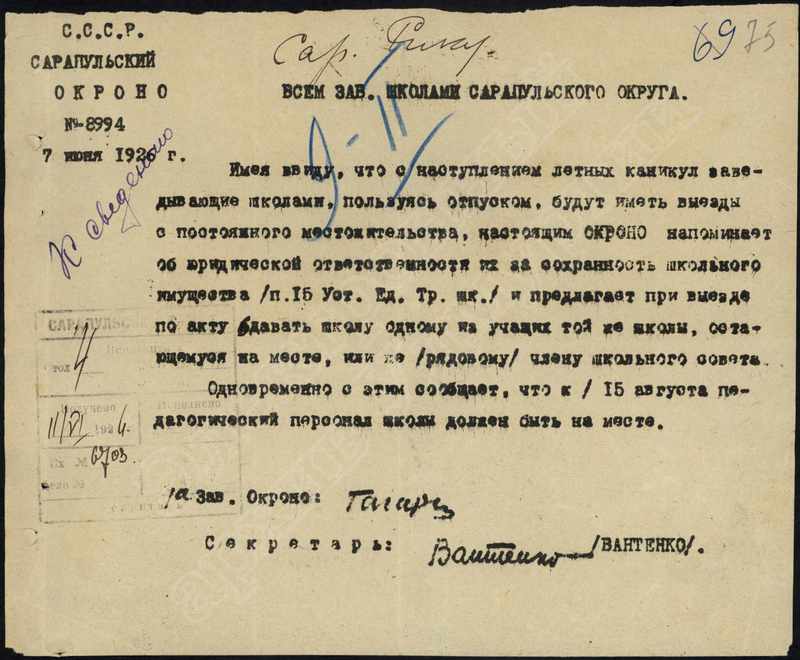 С.С.С.Р.
САРАПУЛЬСКИЙ
ОКРОНО
№-8994
7 июня 1926 г.
Сар.
69 75
ВСЕМ ЗАВ. ШКОЛАМИ САРАПУЛЬСКОГО ОКРУГА.
К сведению
Имея ввиду, что с наступлением летных каникул заве-
дывающие школами, пользуясь отпуском, будут иметь выезды
с постоянного местожительства, настоящим ОКРОНО напоминает
об юридической ответственности их за сохранность школьного
имущества /п.15 Уст. Ед. Тр. шк./ и предлагает при выезде
по акту сдавать школу одному из учащих той же школы, оста-
ющемуся на месте, или же /рядовому/ члену школьного совета.
Одновременно с этим сообщает, что к / 15 августа пе-
дагогический персонал школы должен быть на месте.
САРАПУЛЬС
стол 4
11/VI 1926 г.
Вх № 6703
Зав. Окроно:
Секретарь: Вантенко /ВАНТЕНКО/.